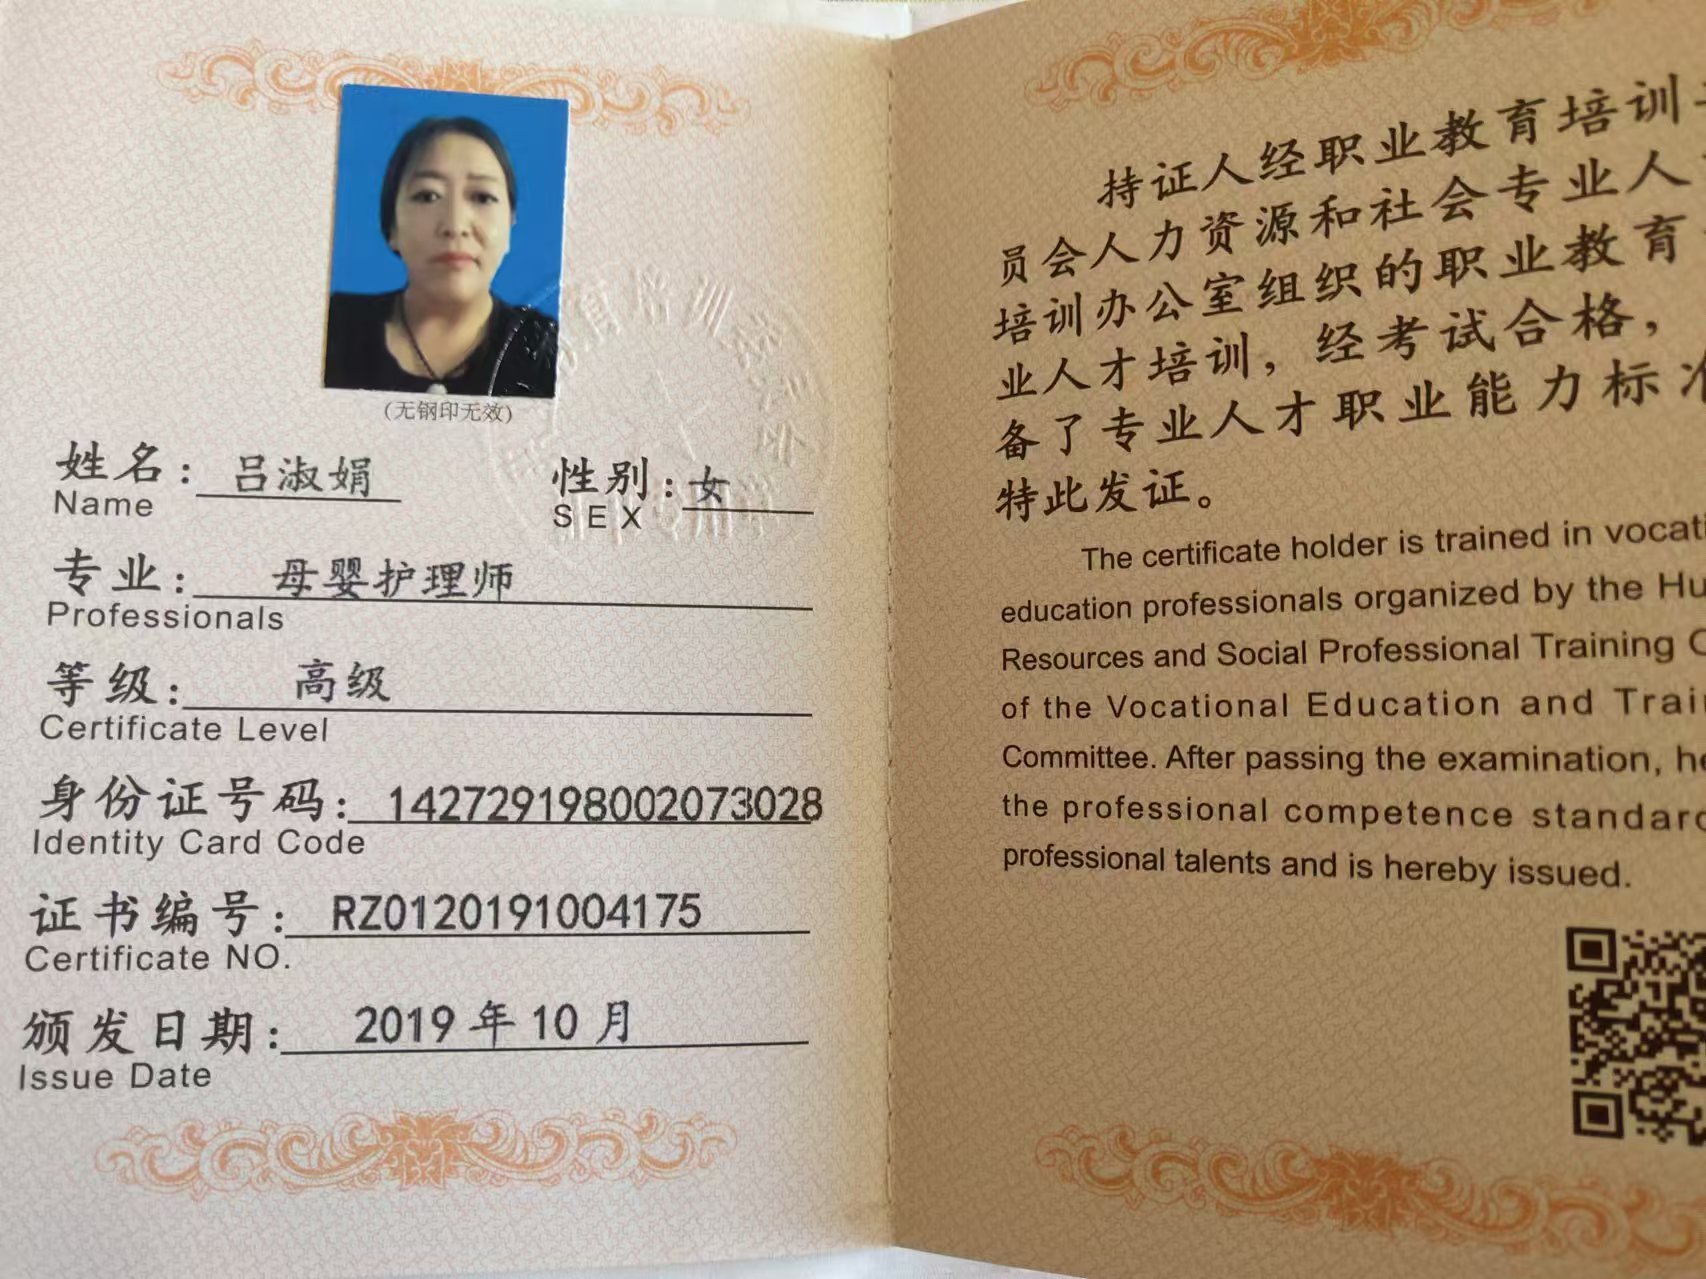 (无钢印无效)
姓名: 吕淑娟 性别: 女
Name SEX
专业: 母婴护理师
Professionals
等级: 高级
Certificate Level
身份证号码: 142729198002073028
Identity Card Code
证书编号: RZ0120191004175
Certificate NO.
颁发日期: 2019年10月
Issue Date
持证人经职业教育培训
员会人力资源和社会专业人
培训办公室组织的职业教育
业人才培训，经考试合格，
备了专业人才职业能力标准
特此发证。
The certificate holder is trained in vocati
education professionals organized by the Hu
Resources and Social Professional Training
of the Vocational Education and Trai
Committee. After passing the examination, he
the professional competence standard
professional talents and is hereby issued.